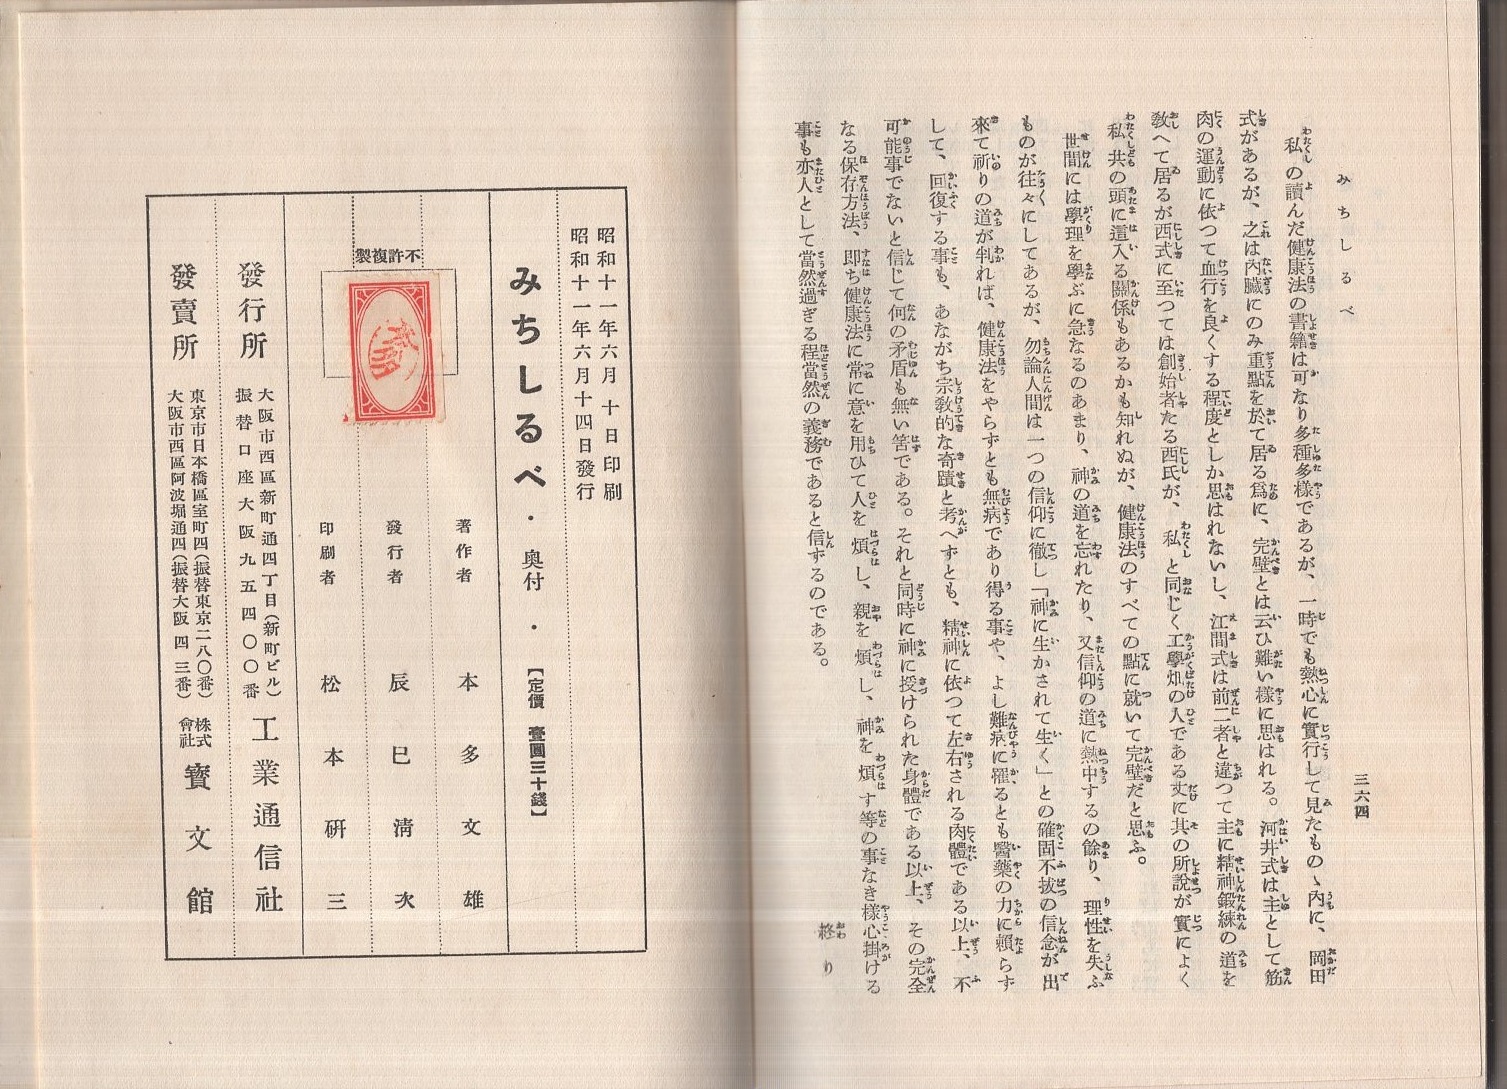 みちしるべ
三六四
私の讀んだ健康法の書籍は可なり多種多樣であるが、一時でも熱心に實行して見たものゝ內に、岡田
式があるが、之は內臟にのみ重點を於て居る爲に、完璧とは云ひ難い樣に思はれる。河井式は主として筋
肉の運動に依つて血行を良くする程度としか思はれないし、江間式は前二者と違つて主に精神鍛練の道を
敎へて居るが西式に至つては創始者たる西氏が、私と同じく工學畑の人である丈に其の所說が實によく
私共の頭に這入る關係もあるかも知れぬが、健康法のすべての點に就いて完璧だと思ふ。
世間には學理を學ぶに急なるのあまり、神の道を忘れたり、又信仰の道に熱中するの餘り、理性を失ふ
ものが往々にしてあるが、勿論人間は一つの信仰に徹し「神に生かされて生く」との確固不拔の信念が出
來て祈りの道が判れば、健康法をやらずとも無病であり得る事や、よし難病に罹るとも醫藥の力に賴らず
して、回復する事も、あながち宗敎的な奇蹟と考へずとも、精神に依つて左右される肉體である以上、不
可能事でないと信じて何の矛盾も無い筈である。それと同時に神に授けられた身體である以上、その完全
なる保存方法、卽ち健康法に常に意を用ひて人を煩し、親を煩し、神を煩す等の事なき樣心掛ける
事も亦人として當然過ぎる程當然の義務であると信ずるのである。
終り
昭和十一年六月十日印刷
昭和十一年六月十四日發行
みちしるべ・奥付・【定價 壹圓三十錢】
著作者 本多文雄
發行者 辰巳淸次
印刷者 松本研三
不許複製
發行所 大阪市西區新町通四丁目(新町ビル) 工業通信社
振替口座大阪九五四〇〇番
發賣所 東京市日本橋區室町四(振替東京二八〇番) 株式會社 寶文館
大阪市西區阿波堀通四(振替大阪四三番)